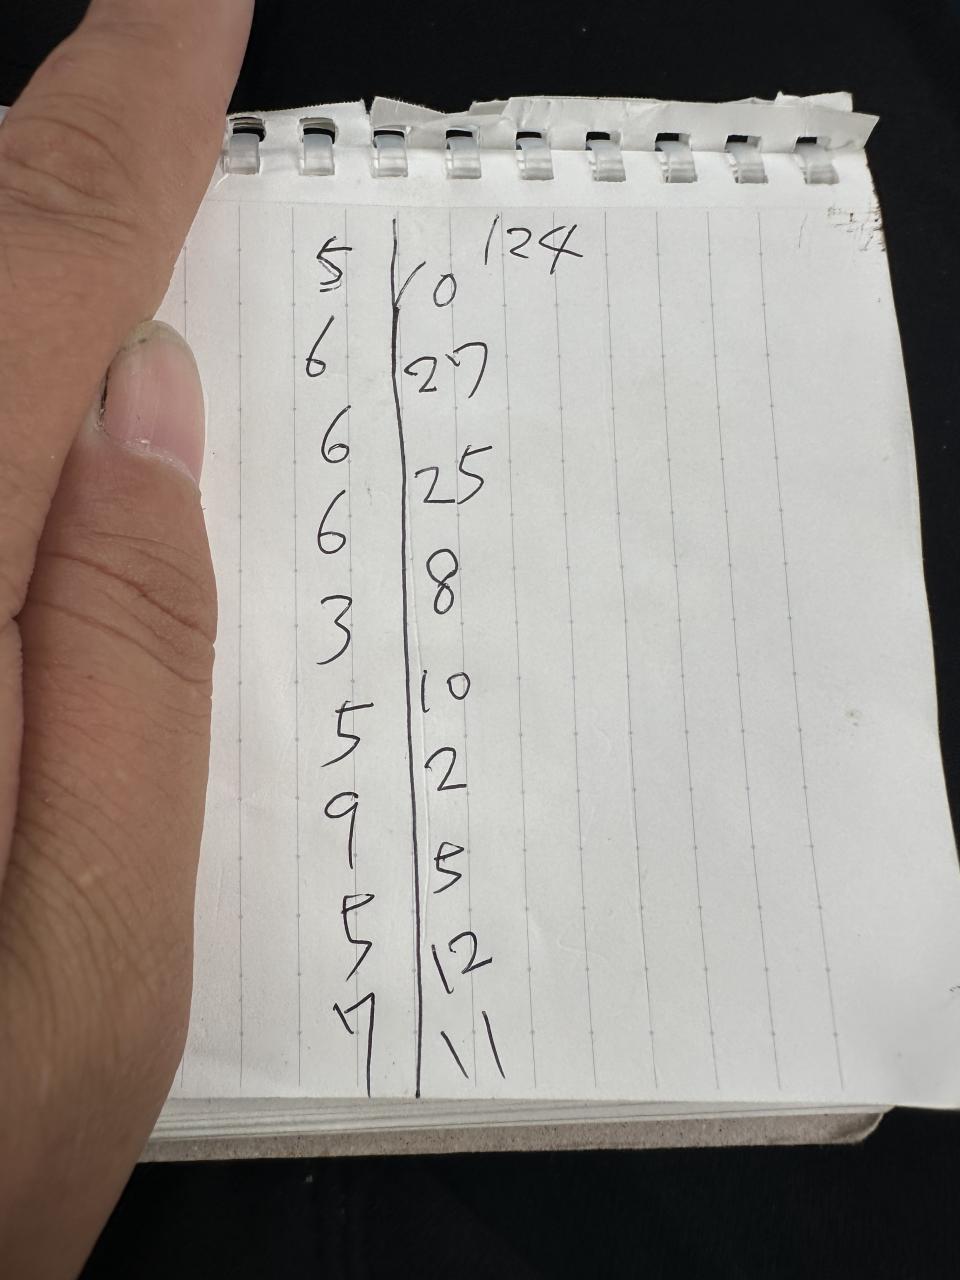 124
5 10
6 27
6 25
6 8
3 10
5 2
9 5
5 12
7 11